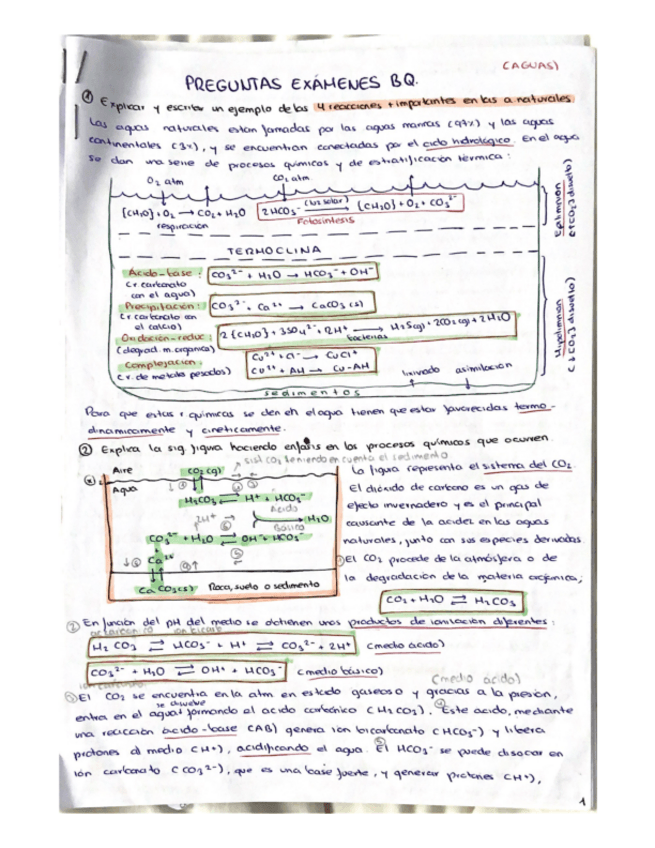 (AGUAS)
PREGUNTAS EXÁMENES BQ.
① Explicar y escribir un ejemplo de las 4 reacciones + importantes en las a. naturales.
Las aguas naturales estan formadas por las aguas marinas (97%) y las aguas
continentales (3%), y se encuentran conectadas por el ciclo hidrológico. En el agua
se dan una serie de procesos químicos y de estratificación térmica:
O2 atm CO2 atm
{CH2O} + O2 → CO2 + H2O
respiración
2HCO3- (luz solar) → {CH2O} + O2 + CO3 2-
Fotosíntesis
Epilimnion
(↑CO2) disuelto)
TERMOCLINA
Ácido-base: CO3 2- + H2O → HCO3- + OH-
(r carbonato
con el agua)
Precipitación: CO3 2- + Ca 2+ → CaCO3 (s)
(r carbonato con
el calcio)
Oxidación-reduc: 2{CH2O} + SO4 2- + 2H+ → H2S(g) + 2CO2(g) + 2H2O
bacterias
(degrad. m. organica)
Complejación: Cu 2+ + Cl- → CuCl+
(r. de metales pesados) Cu 2+ + AH → Cu-AH
Hipolimnion
(↓CO2) disuelto)
lixiviado asimilación
sedimentos
Para que estas r químicas se den en el agua tienen que estar favorecidas termo-
dinamicamente y cinéticamente.
② Explica la sig figura haciendo énfasis en los procesos químicos que ocurren.
sist CO2 teniendo en cuenta el sedimento.
Aire CO2 (g)
Agua
H2CO3 ⇌ H+ + HCO3-
2H+ Ácido
Básico H2O
CO3 2- + H2O ⇌ OH- + HCO3-
Ca 2+
CaCO3(s) Roca, suelo o sedimento
La figura representa el sistema del CO2.
El dióxido de carbono es un gas de
efecto invernadero y es el principal
causante de la acidez en las aguas
naturales, junto con sus especies derivadas
① El CO2 procede de la atmósfera o de
la degradación de la materia orgánica;
CO2 + H2O ⇌ H2CO3
② En función del pH del medio se obtienen unos productos de ionización diferentes:
ac carbónico ion bicarb
H2CO3 ⇌ HCO3- + H+ ⇌ CO3 2- + 2H+ (medio ácido)
CO3 2- + H2O ⇌ OH- + HCO3- (medio básico)
ion carbonato (medio ácido)
③ El CO2 se encuentra en la atm en estado gaseoso y gracias a la presion,
se disuelve
entra en el agua formando el acido carbónico (H2CO3). ④ Este acido, mediante
una reacción ácido-base (AB) genera ion bicarbonato (HCO3-) y libera
protones al medio (H+), acidificando el agua. ⑤ El HCO3- se puede disociar en
ión carbonato (CO3 2-), que es una base fuerte, y generar protones (H+),
1